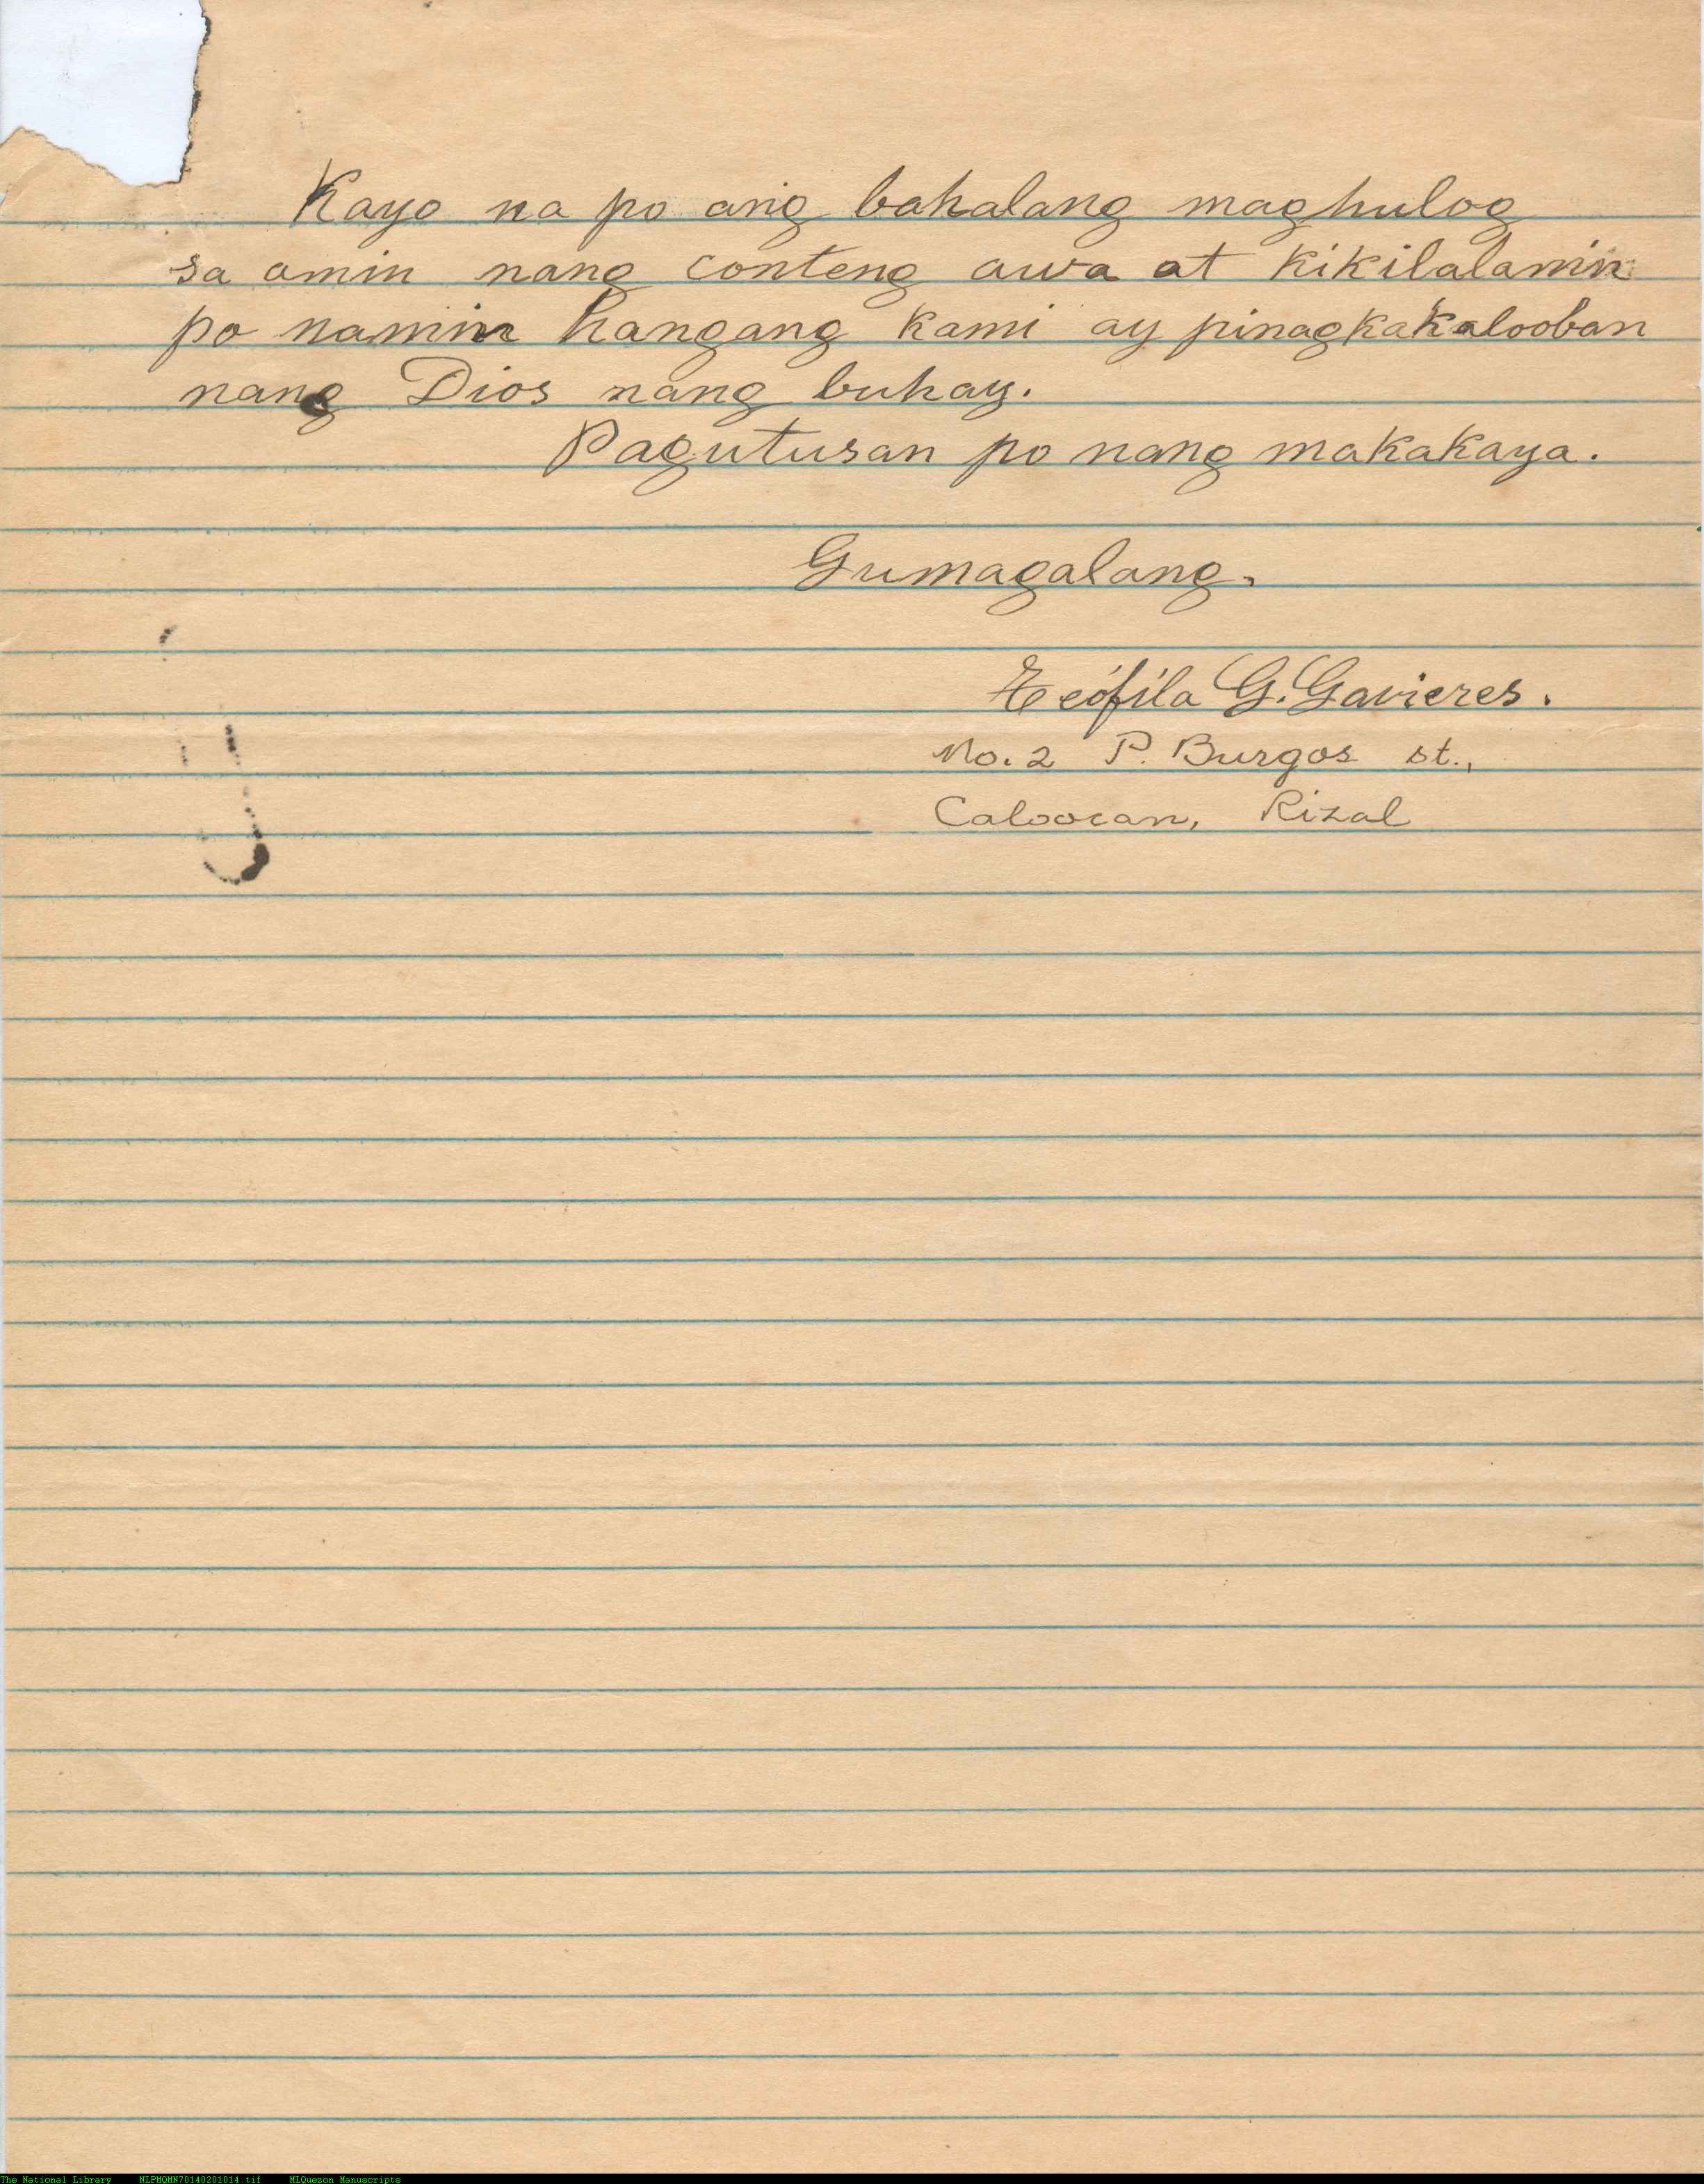 Kayo na po ang bahalang maghulog
sa amin nang conteng awa at kikilalanin
po namin hangang kami ay pinagkakalooban
nang Dios nang buhay.
Pagutusan po nang makakaya.
Gumagalang,
Teófila G. Gavieres.
No. 2 P. Burgos st.,
Caloocan, Rizal
The National Library NLPMQMN70140201014.tif MLQuezon Manuscripts